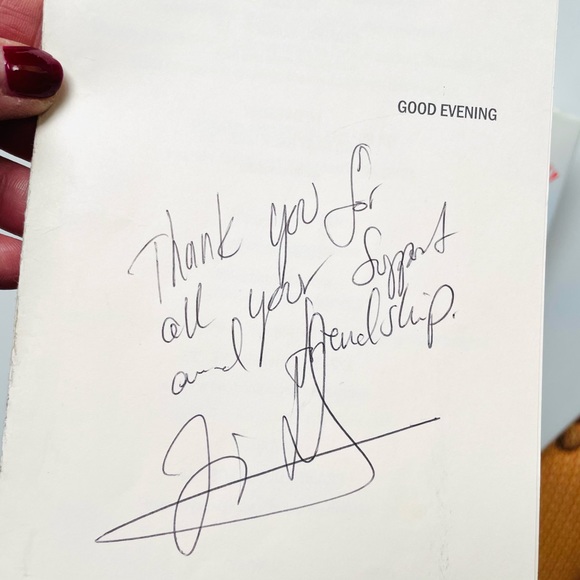 GOOD EVENING
Thank you for
all your support
and friendship.